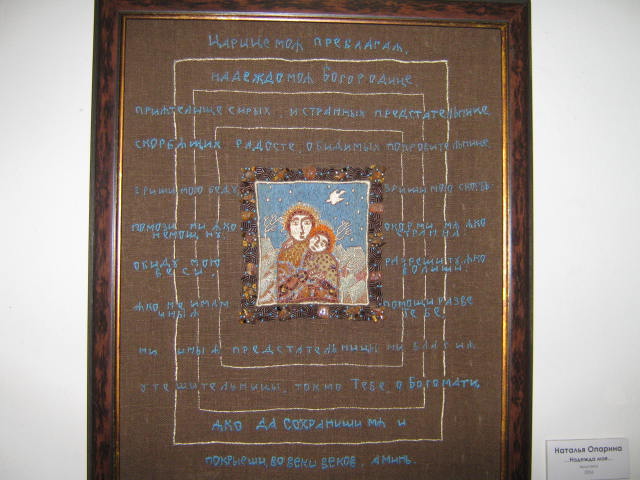 Царице моѧ преблагаѧ,
надеждо моѧ Богородице,
приѧтелище сирых, и странных предстательнице,
скорбѧщих радосте, обидимых покровительнице,
зриши мою беду, зриши мою скорбь
помози ми ѧко немощну, окорми мѧ ѧко странна.
обиду мою веси, разреши ту, ѧко волиши
ѧко не имам иныѧ помощи разве тебе,
ни иныѧ предстательницы ни благиѧ
утешительницы, токмо Тебе, о Богомати,
ѧко да сохраниши мѧ и
покрыеши, во веки веков. Аминь.
Наталья Опарина
"Надежда моя..."